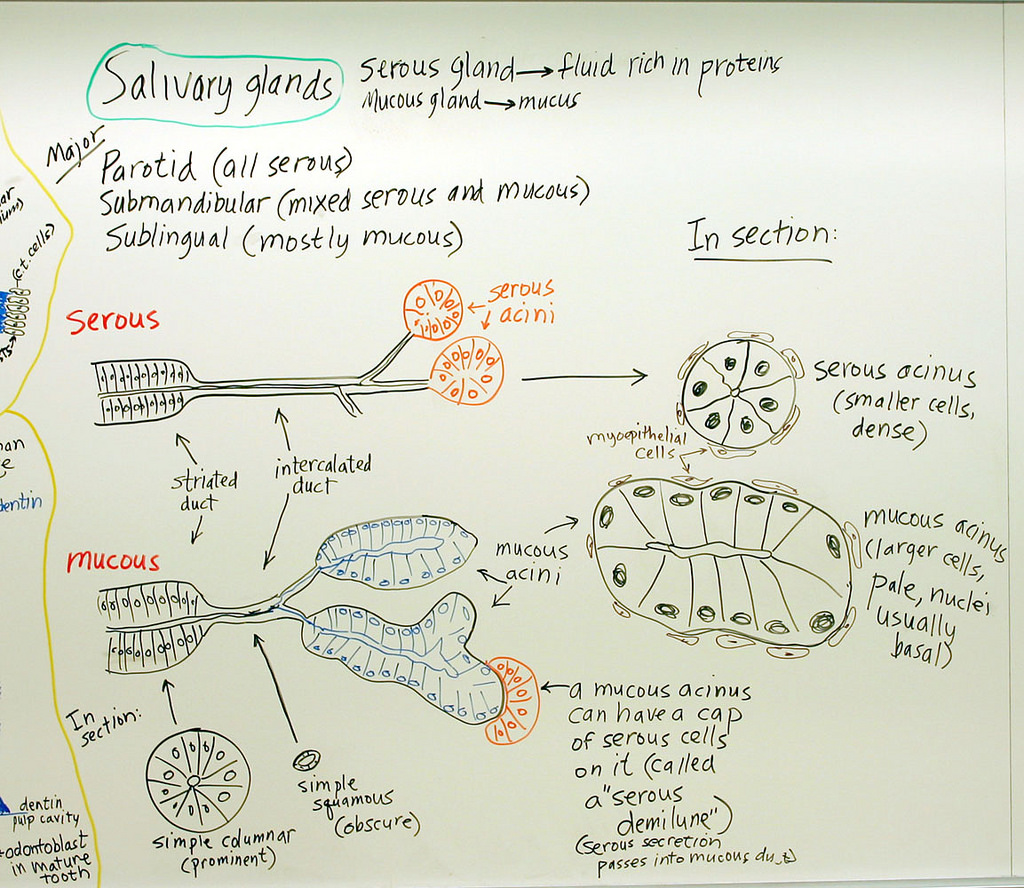 Salivary glands
Serous gland → fluid rich in proteins
Mucous gland → mucus
Major
Parotid (all serous)
Submandibular (mixed serous and mucous)
Sublingual (mostly mucous)
In section:
(c.t. cells)
serous
serous
acini
serous acinus
(smaller cells,
dense)
myoepithelial
cells
striated
duct
intercalated
duct
dentin
mucous
mucous
acini
mucous acinus
(larger cells,
pale, nuclei
usually
basal)
In
section:
a mucous acinus
can have a cap
of serous cells
on it (called
a "serous
demilune")
(serous secretion
passes into mucous duct)
simple
squamous
(obscure)
simple columnar
(prominent)
dentin
pulp cavity
odontoblast
in mature
tooth